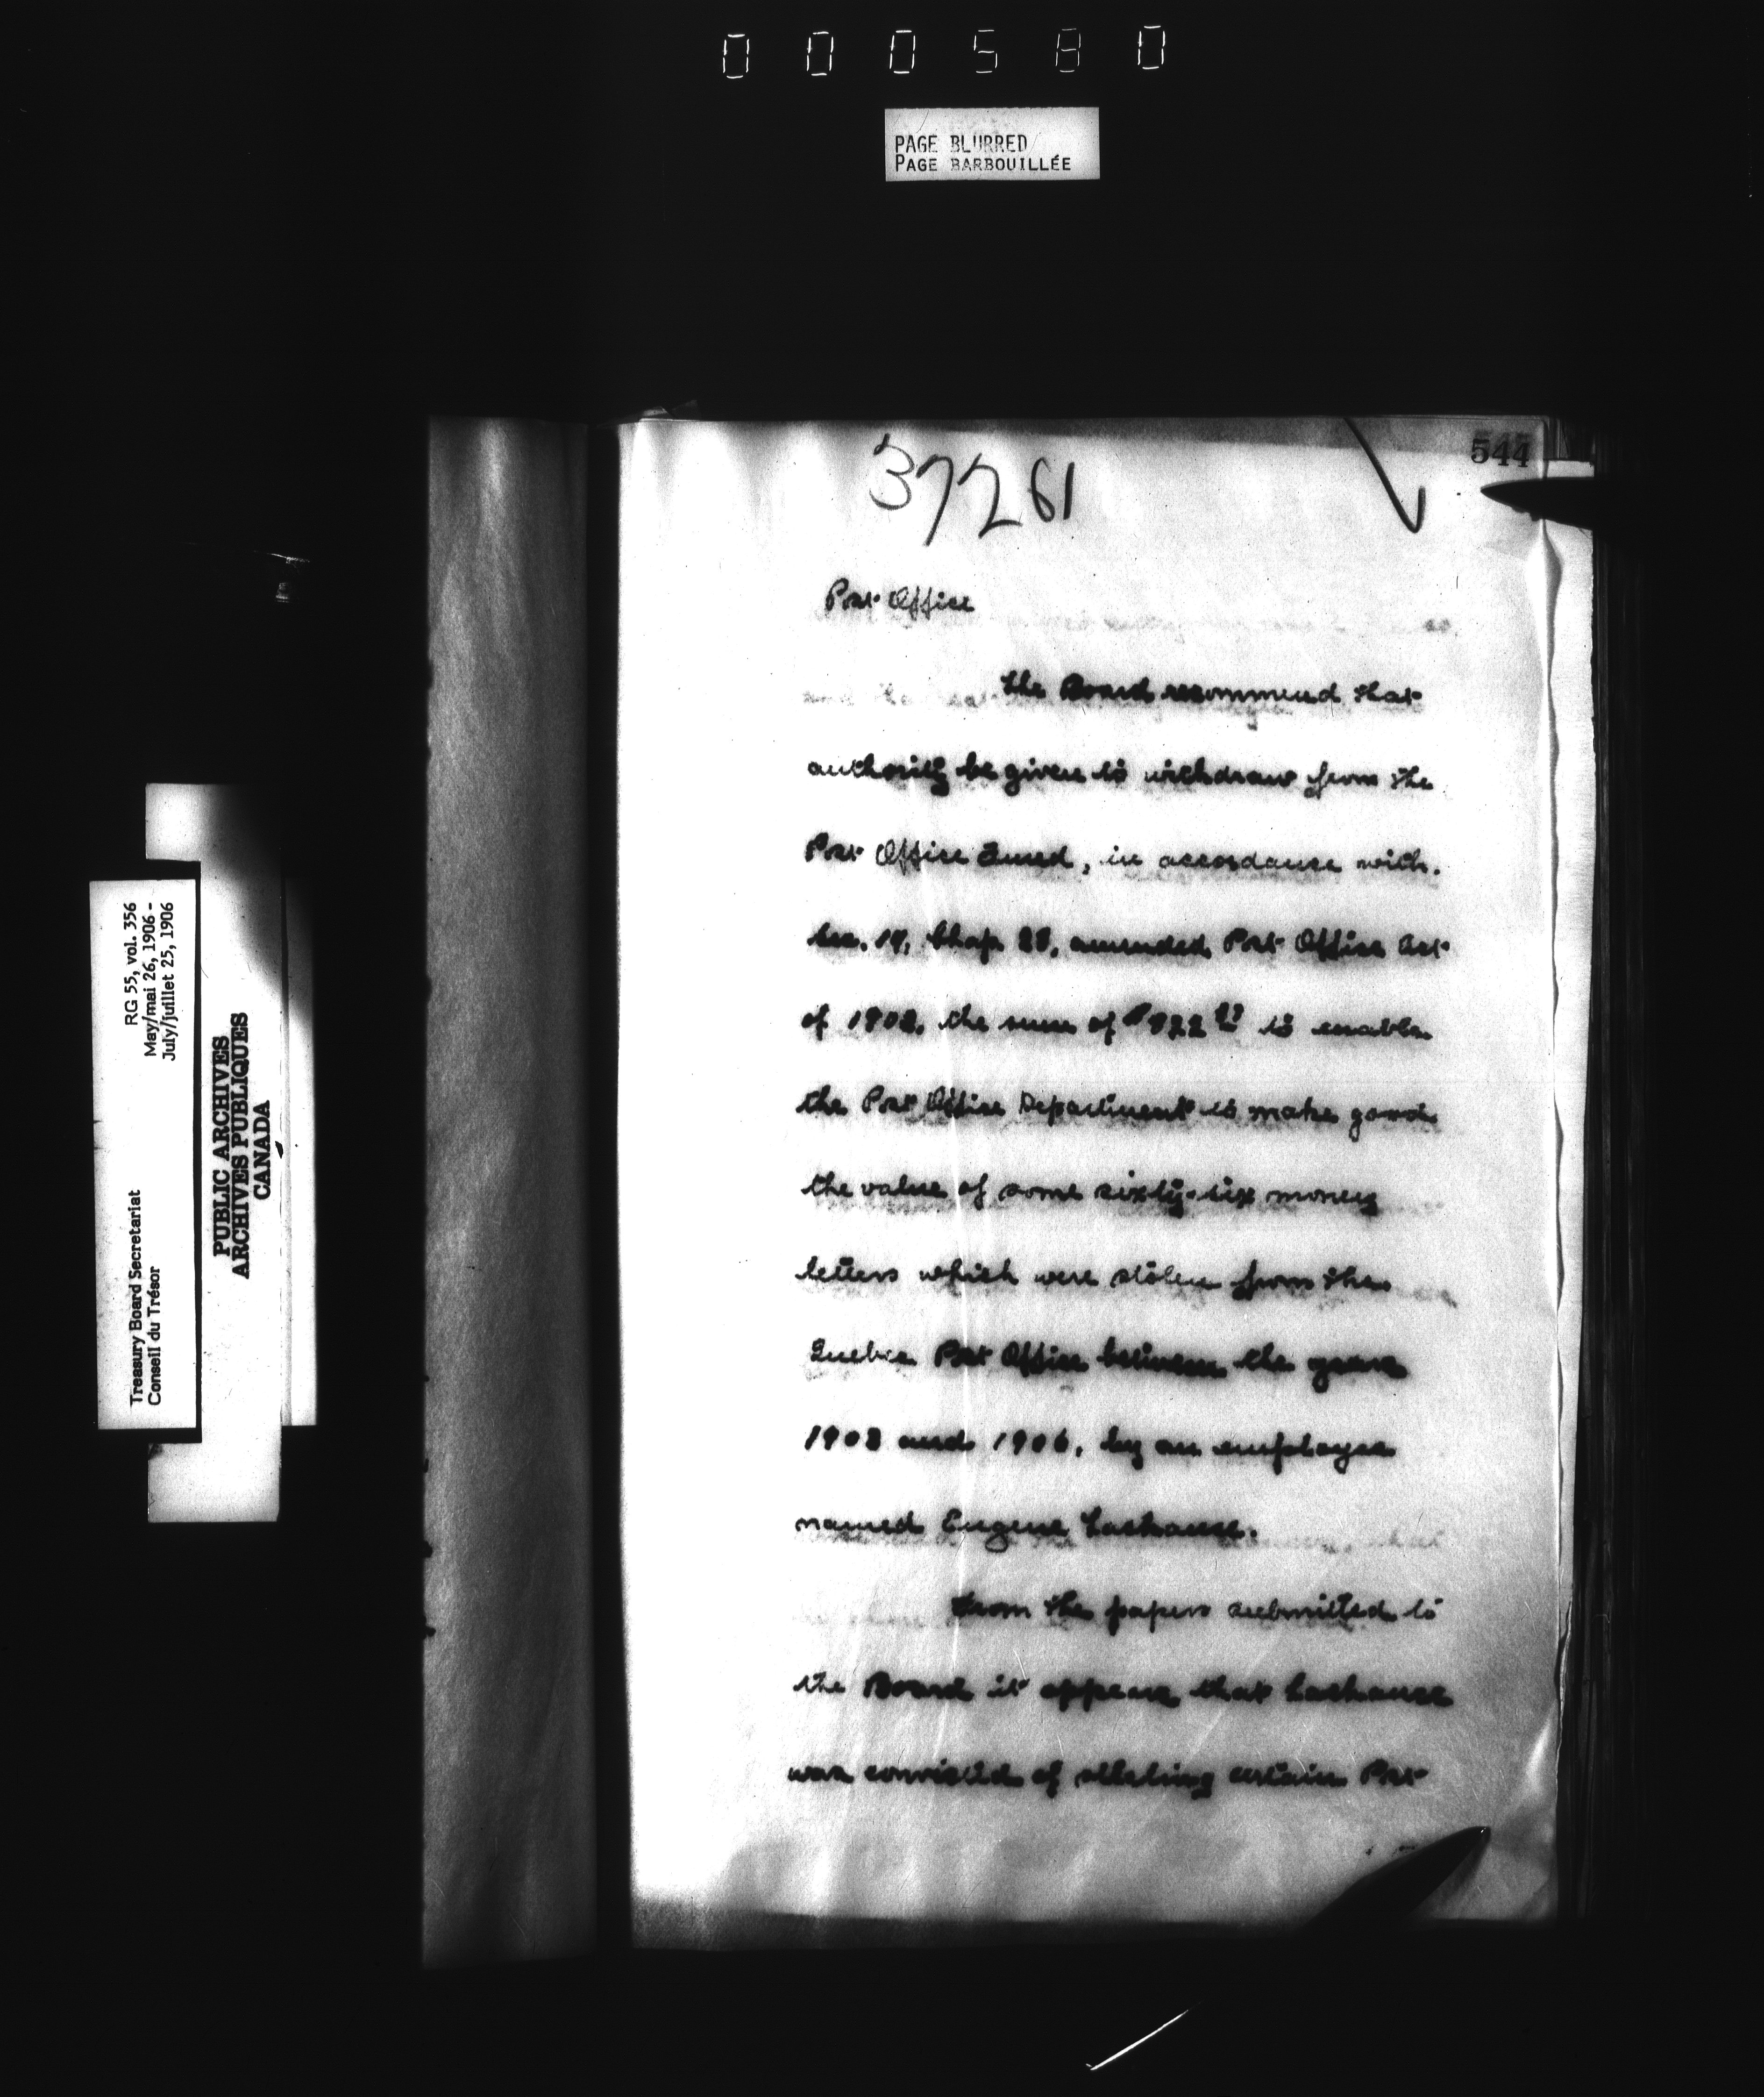 000580
PAGE BLURRED
PAGE BARBOUILLÉE
544
37261
Post Office
The Board recommend that
authority be given to withdraw from the
Post Office Fund, in accordance with
Sec. 19, Chap 28, amended Post Office Act
of 1902, the sum of to enable
the Post Office Department to make good
the value of some sixty-six money
letters which were stolen from the
Quebec Post Office between the years
1903 and 1906, by an employee
named Eugene Lachance.
From the papers submitted to
the Board it appears that Lachance
was convicted of stealing certain Post
RG 55, vol. 356
May/mai 26, 1906 -
July/juillet 25, 1906
Treasury Board Secretariat
Conseil du Trésor
PUBLIC ARCHIVES
ARCHIVES PUBLIQUES
CANADA